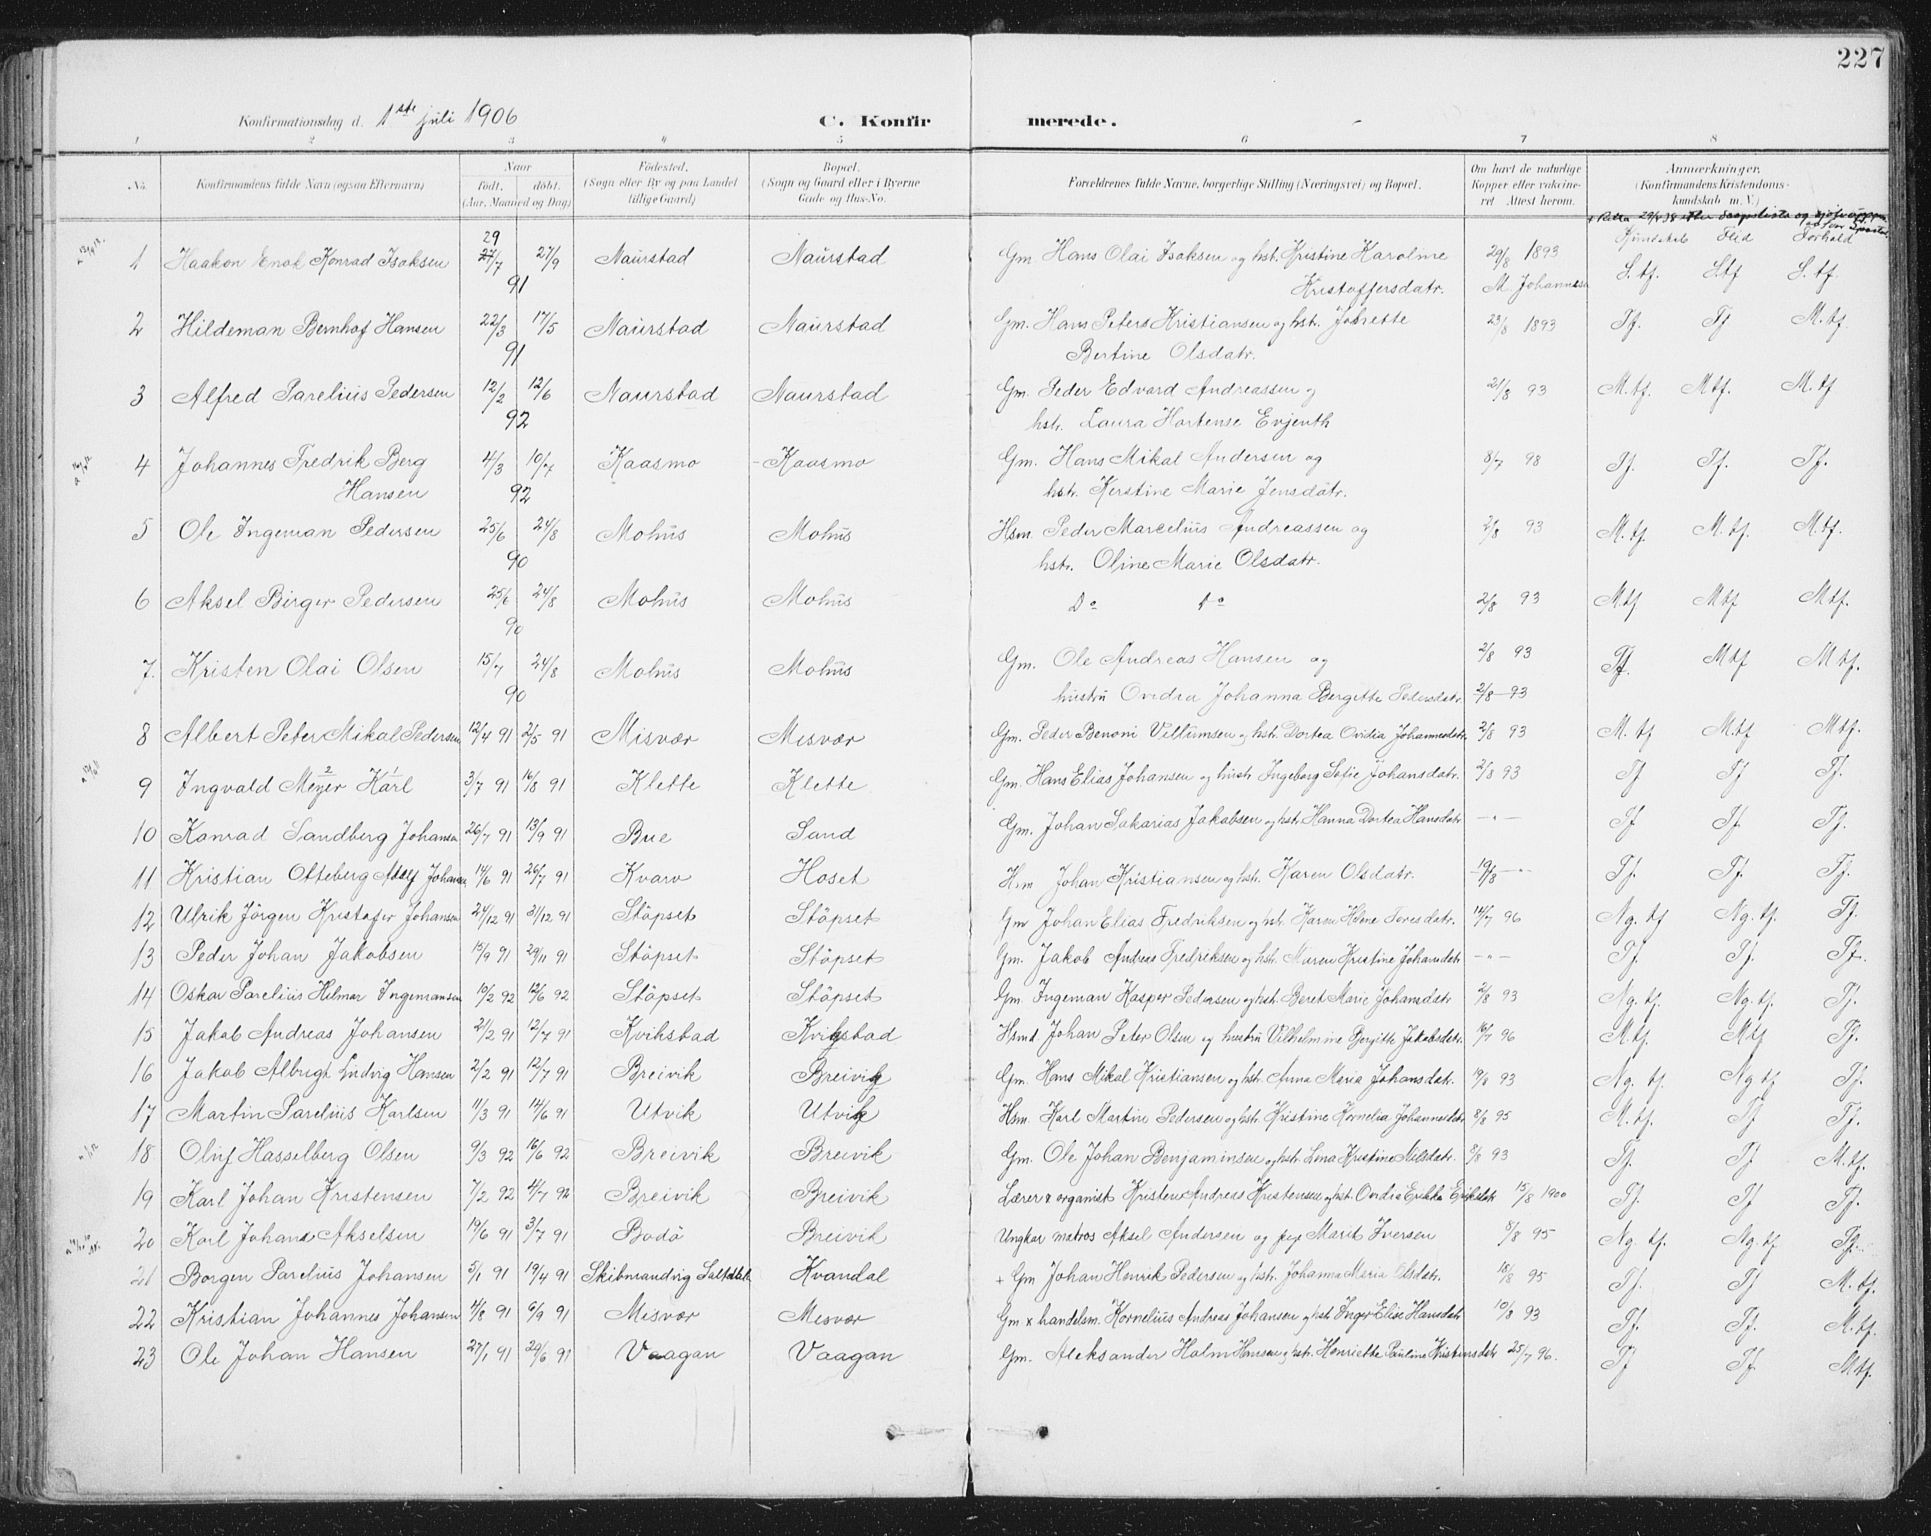 227
Konfirmationsdag d. 1ste juli 1906 C. Konfirmerede.
1 2 3 4 5 6 7 8
No. Konfirmandens fulde Navn (ogsaa Efternavn) Naar født. døbt. (Aar, Maaned og Dag) Fødested. (Sogn eller By og paa Landet tillige Gaard) Bopæl. (Sogn og Gaard eller i Byerne Gade og Hus-No. Forældrenes fulde Navne, borgerlige Stilling (Næringsvei) og Bopæl. Om havt de naturlige Kopper eller vaccineret Attest herom. Anmærkninger. (Konfirmandens Kristendomskundskab m. V.)
Kundskab Flid Forhold
1 Haakon Enok Konrad Isaksen 29 27/7 27/9 91 Naurstad Naurstad Gm. Hans Olai Isaksen og hst. Kristine Karoline 29/8 1893 S. tf. Stf S. tf.
Kristoffersdatr. M Johannesen
2 Hildeman Bernhof Hansen 22/3 17/5 91 Naurstad Naurstad Gm. Hans Peters Kristiansen og hst. Johrette 23/8 1893 Tf. Tf M. tf.
Bertine Olsdatr.
3 Alfred Parelius Pedersen 12/2 12/6 92 Naurstad Naurstad Gm. Peder Edvard Andreassen og 21/8 93 M. tf. Mtf. M. tf
hstr. Laura Hortense Evjenth
4 Johannes Fredrik Berg 4/3 10/7 92 Kaasmo Kaasmo Gm. Hans Mikal Andersen og 8/7 98 Tf. Tf. Tf.
Hansen hstr. Kerstine Marie Jensdatr.
5 Ole Ingeman Pedersen 25/6 24/8 90 Mohus Mohus Hsm. Peder Marcelius Andreassen og 2/8 93 M. tf. M. tf. M. tf.
hstr. Oline Marie Olsdatr.
6 Aksel Birger Pedersen 25/6 24/8 90 Mohus Mohus Do do 2/8 93 Mtf Mtf Mtf.
7. Kristen Olai Olsen 15/7 24/8 90 Mohus Mohus Gm. Ole Andreas Hansen og 2/8 93 Tf. Mtf Mtf.
hustru Ovidia Johanna Bergitte Pedersdatr. 2/8 93
8 Albert Peter Mikal Pedersen 12/4 91 2/5 91 Misvær Misvær Gm. Peder Benoni Villumsen og hst. Dortea Ovidia Johannesdatr. 2/8 93 M. tf M.tf Mtf.
9 Ingvald Meyer 2 Karl 1 3/7 91 16/8 91 Klette Klette Gm. Hans Elias Johansen og hustr. Ingeborg Sofie Johansdatr. 2/8 93 Tf Tf Tf.
10 Konrad Sandberg Johansen 26/7 91 13/9 91 Bue Sand Gm. Johan Sakarias Jakobsen og hstr. Hanna Dortea Hansdatr — " — Tf Tf. Tf.
11 Kristian Otteberg Adolf Johansen 14/6 91 26/7 91 Kvarv Hoset Hsm Johan Kristiansen og hstr. Karen Olsdatr. 19/8 — " — Tf. Tf. Tf.
12 Ulrik Jörgen Kristofer Johansen 24/12 91 31/12 91 Stöpset Stöpset Gm Johan Elias Fredriksen og hst. Karen Helene Toresdatr. 14/7 96 Ng. tf Ng. tf. Tf.
13 Peder Johan Jakobsen 13/9 91 29/11 91 Stöpset Stöpset Gm. Jakob Andreas Fredriksen og hst. Maren Kristine Johansdatr — " — Tf. Tf. Tf.
14 Oskar Parelius Hilmar Ingemansen 10/2 92 12/6 92 Stöpset Stöpset Gm. Ingeman Kasper Pedersen og hst. Beret Marie Johansdatr 2/8 93 Ng. tf. Ng. tf. Tf.
15 Jakob Andreas Johansen 21/2 91 12/7 91 Kvikstad Kvikstad Hsmd. Johan Peter Olsen og hustru Vilhelmine Bergitte Jakobsdatr. 16/7 96 M. tf. Mtf Tf.
16 Jakob Albrigt Ludvig Hansen 2/2 91 12/7 91 Breivik Breivik Gm. Hans Mikal Kristiansen og hst. Anna Maria Johansdatr. 19/8 93 Ng. tf Ng tf Tf.
17 Martin Parelius Karlsen 11/3 91 14/6 91 Utvik Utvik Hsm. Karl Martin Pedersen og hst. Kristine Kornelia Johannesdatr 8/8 95 M. tf. Tf Tf.
18 Oluf Hasselberg Olsen 9/3 92 16/6 92 Breivik Breivik Gm. Ole Johan Benjaminsen og hstr. Lena Kristine Nilsdatr. 8/8 93 Tf. Tf M. tf.
19 Karl Johan Kristensen 7/2 92 4/7 92 Breivik Breivik Lærer & organist Kristen Andreas Kristensen og hst. Ovidia Erikka Eriksdatr 15/8 1900 Tf. Tf Tf.
20 Karl Johans Akselsen 19/6 91 3/7 91 Bodö Breivik Ungkar matros Aksel Andersen og pige Marit Iversen 8/8 95 Ng. tf. Ng. tf Tf.
21 Borgen Parelius Johansen 5/1 91 19/4 91 Skibmandvig Saltdal Kvandal + Gm Johan Henrik Pedersen og hst. Johanna Maria Olsdatr. 18/8 95 Tf. Tf M. tf.
22 Kristian Johannes Johansen 4/8 91 6/9 91 Misvær Misvær Gm & handelsm. Kornelius Andreas Johansen og hst Inger Elise Hansdatr 10/8 93 Tf. Tf. M. tf.
23 Ole Johan Hansen 27/1 91 29/6 91 Vaagan Vaagan Gm. Aleksander Holm Hansen og hst. Henriette Pauline Kristiansdatr 25/7 96. Tf Tf. Mtf.